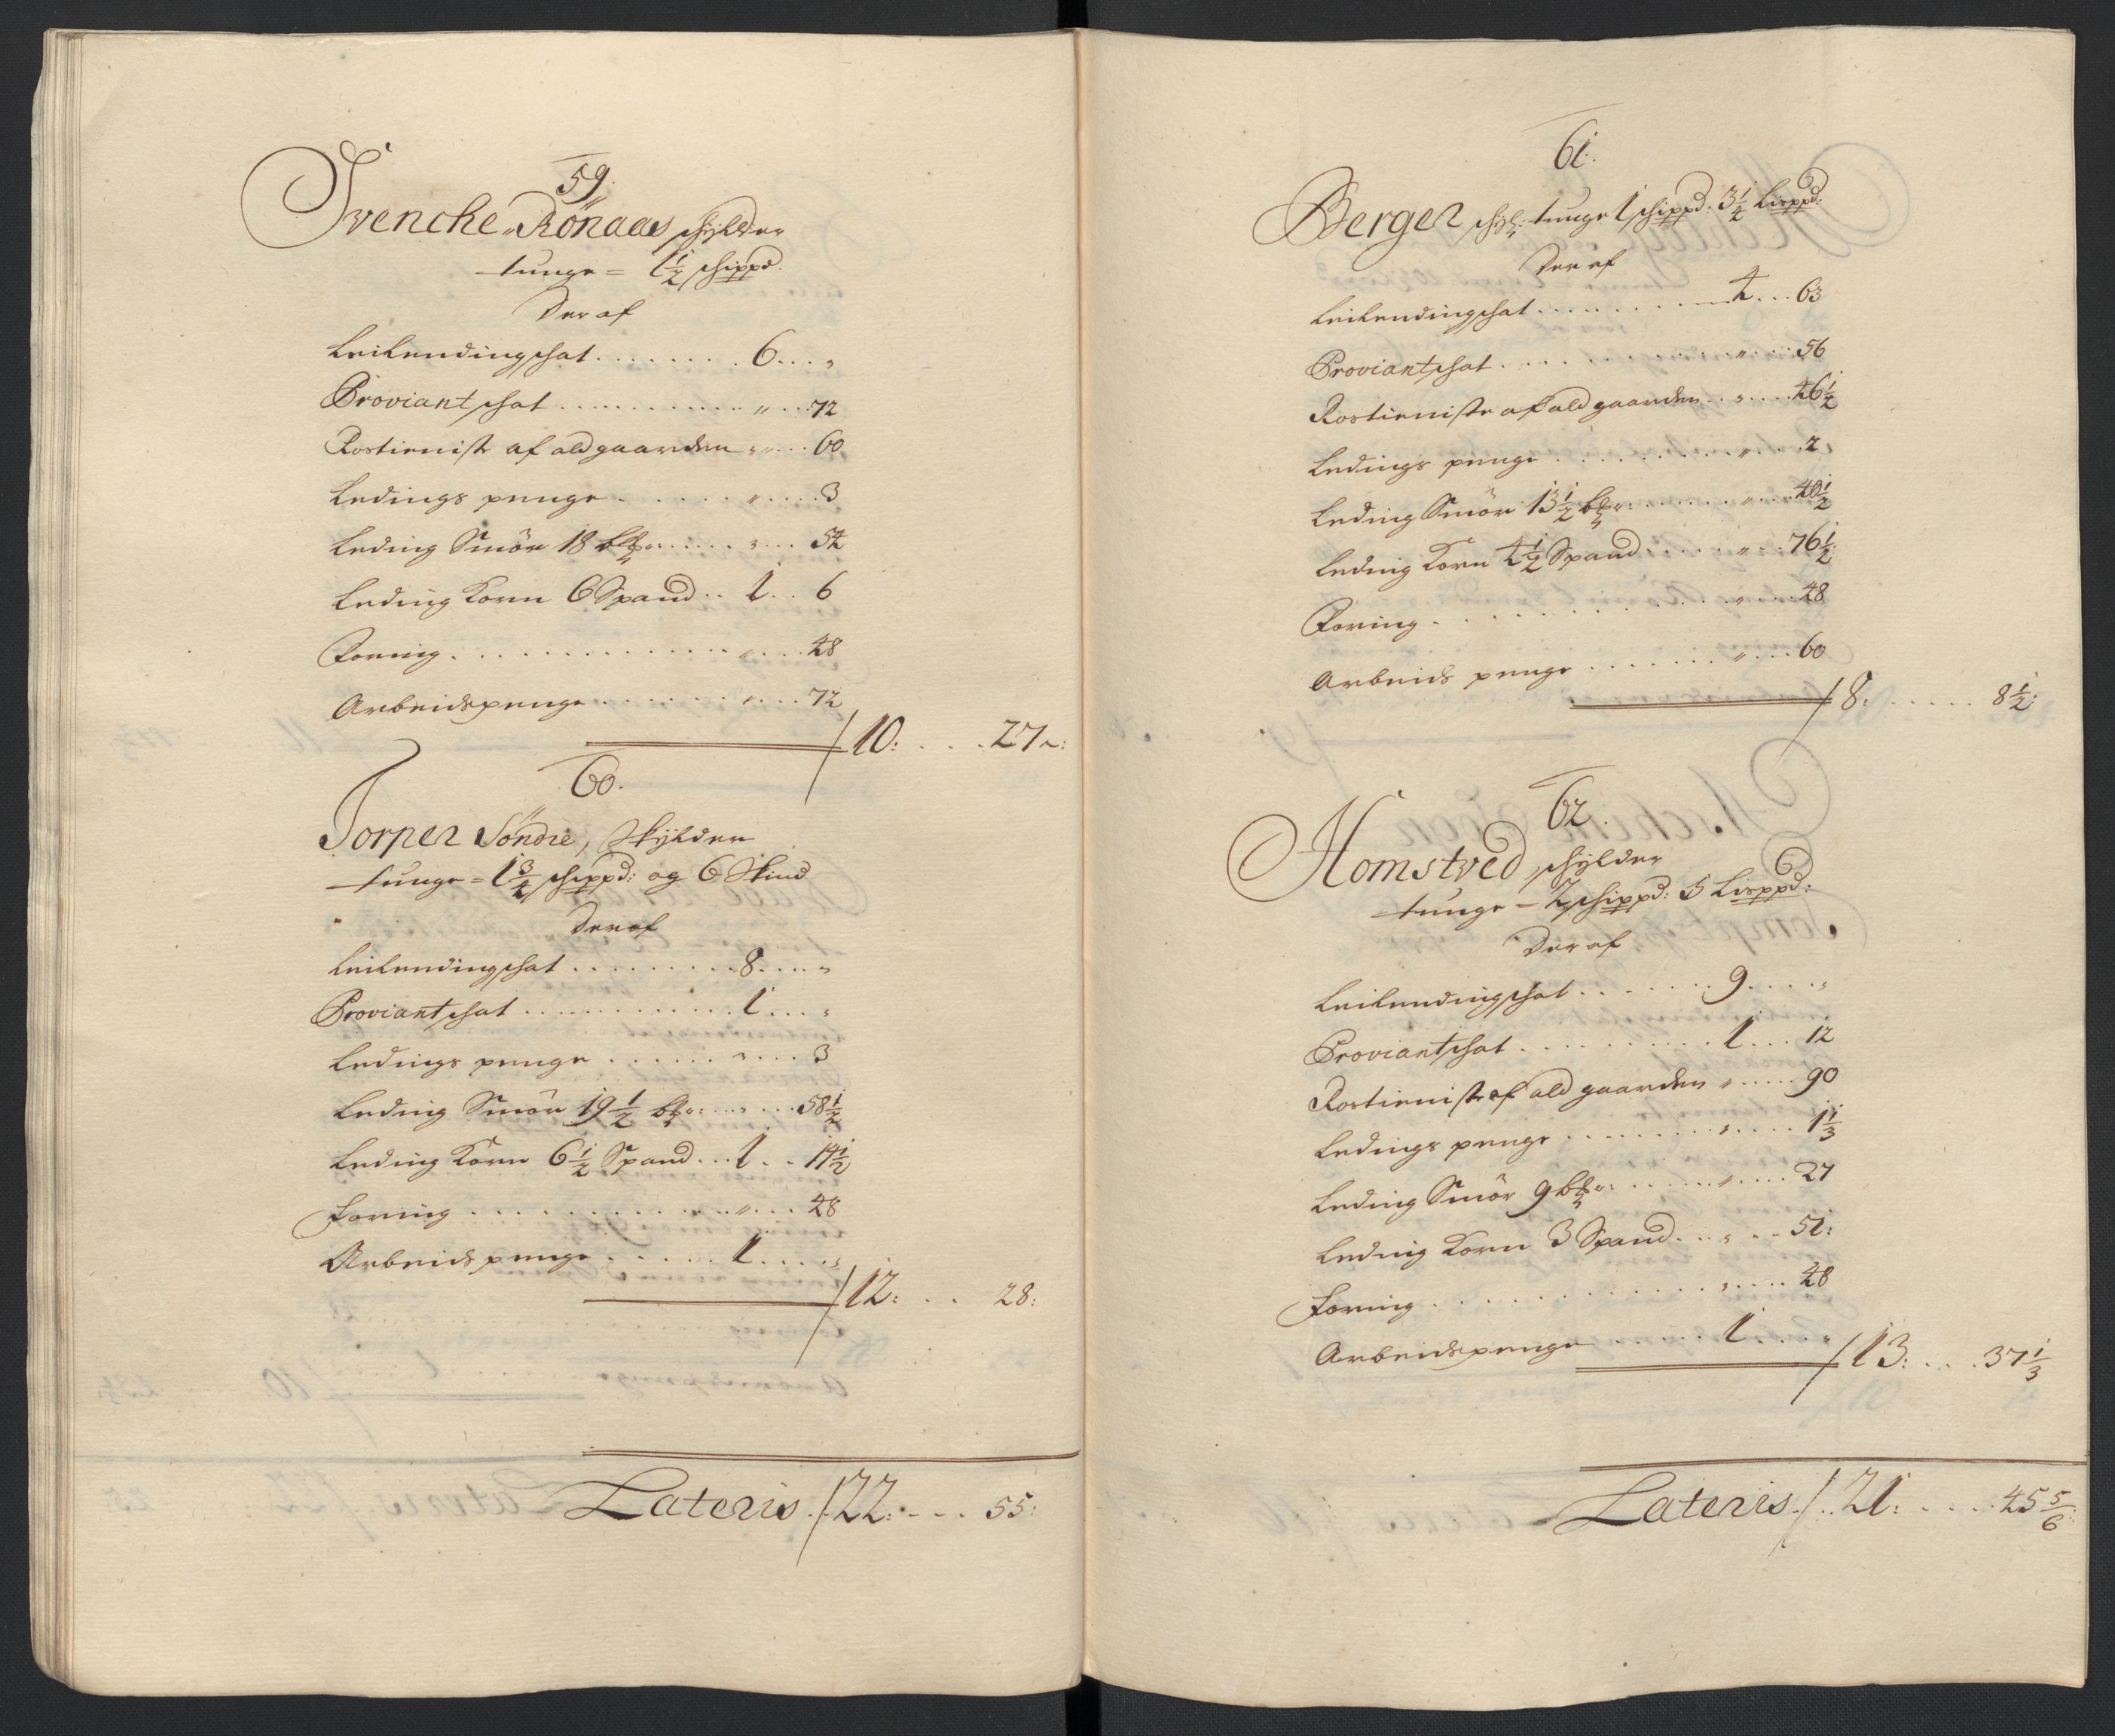 59.
Svencke Rönaas schylder
tunge = 1 1/2 schippd.
Der af
Leilendingschat . . . . . . . 6 . . . „
Proviantschat . . . . . . . . . „ . . . 72
Rostieniste af ald gaarden „ . . . 60
Ledings penge . . . . . . „ . . . . 3
Leding Smör 18 . . . . . „ . . . 54
Leding Korn 6 Spand . . 1 . . 6
Foring . . . . . . . . . . . . . „ . . . 48
Arbeidspenge . . . . . . . „ . . . 72
10: . . . . 27 :
60.
Torper Söndre, Skylder
tunge = 1 3/4 schippd: og 6 Skind
Der af
Leilendingschat . . . . . . . . . 8 . . . . „
Proviantschat . . . . . . . . . . . 1 . . . „
Ledings penge . . . . . . „ . . . . 3
Leding Smör 19 1/2 . . . . . . 58 1/2
Leding Korn 6 1/2 Spand . . . 1 . . 14 1/2
Foring . . . . . . . . . . . . „ . . . 48
Arbeids penge . . . . . . 1 . . . . „
12: . . . 28:
Lateris . 22: . . . . 55:
61.
Berger schyl: tunge 1 schippd: 3 1/4 Lisppd:
Der af
Leilendingschat . . . . . . . . . 4 . . . 63
Proviantschat . . . . . . . . . . „ . . . 56
Rostieniste af ald gaarden . . „ . . . . 46 1/2
Ledings penge . . . . . . . . . „ . . . 2
Leding Smör 13 1/2 . . . . . . . „ . . . . 40 1/2
Leding Korn 4 1/2 Spand . . . . . „ . . . 76 1/2
Foring . . . . . . . . . . . . . „ . . . . 48
Arbeids penge . . . . . . . . „ . . . 60
8: . . . . . . 8 1/2:
62.
Homstved, schylder
tunge = 2 schippd: 5 Lisppd:
Der af
Leilendingschat . . . . . . . 9 . . . . „
Proviantschat . . . . . . . . . . 1 . . . 12
Rostieniste af ald gaarden „ . . . . . 90
Ledings penge . . . . . . . . . „ . . . . 1 1/3
Leding Smör 9 . . . . . . . „ . . . . 27
Leding Korn 3 Spand . . . „ . . . 51:
Foring . . . . . . . . . . . . . . „ . . . . 48
Arbeidspenge . . . . . . 1 . . . . „
13: . . . 37 1/3
Lateris . 21: . . . . . 45 5/6: